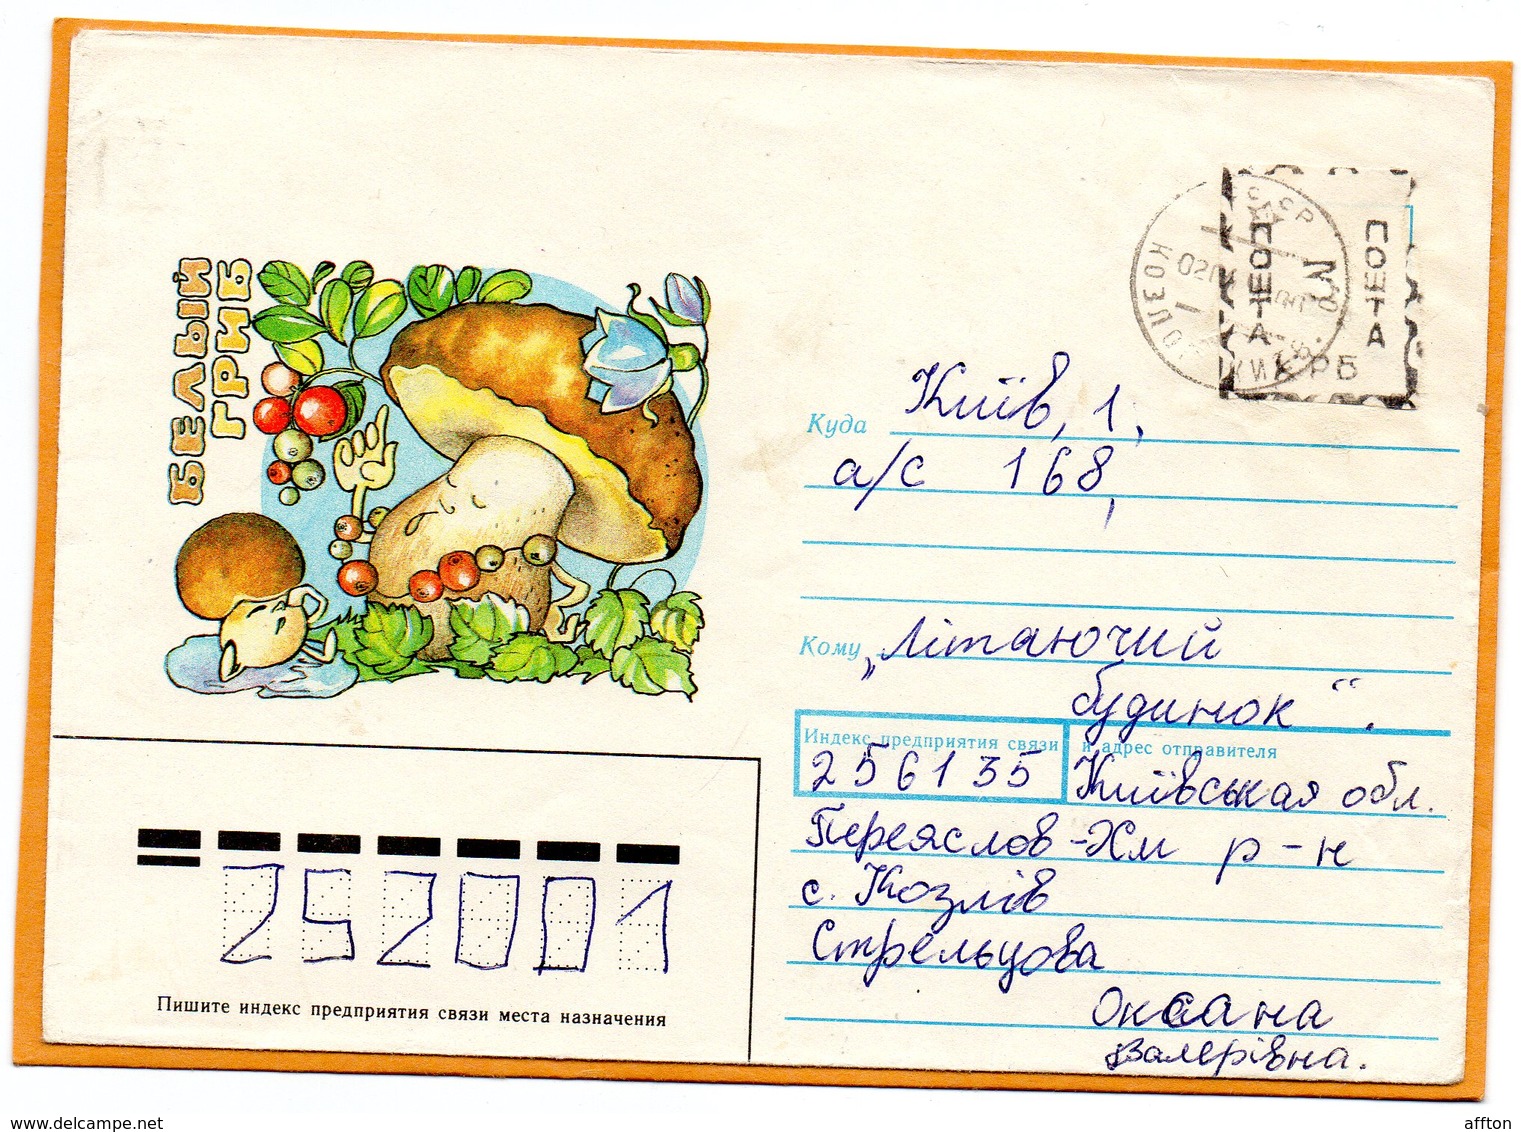 БЕЛЫЙ
ГРИБ
ПОШТА
ПОШТА
КРБ
Куда Київ, 1,
а/с 168,
Кому „Літаючий
будинок“.
Индекс предприятия связи и адрес отправителя
256135 Київська обл.
Переяслов-Хм р-н
с. Козлів
Стрельцова
Оксана
Валерівна.
252001
Пишите индекс предприятия связи места назначения
www.delcampe.net
affton